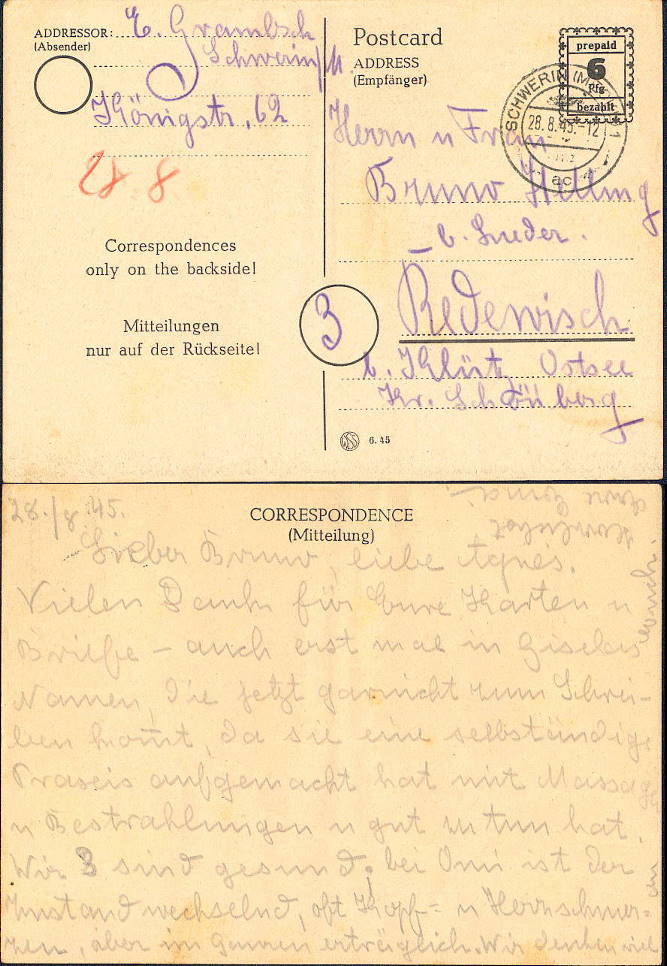 ADDRESSOR: E. Grambsch
(Absender)
Schwerin/M.
Königstr. 62
28 8
Correspondences
only on the backside!
Mitteilungen
nur auf der Rückseite!
Postcard
ADDRESS
(Empfänger)
prepaid
6
Pfg
bezahlt
SCHWERIN (M
28.8.45.-12
ac
Herrn u Frau
Bruno Helling
b. Lueder.
Redewisch
b. Klütz Ostsee
Kr. Schönberg
3
6.45
28./8.45.
CORRESPONDENCE
(Mitteilung)
Lieber Bruno, liebe Agnes.
Vielen Dank für Eure Karten u
Briefe – auch erst mal in Giselas
Namen, die jetzt garnicht zum Schrei-
ben kom̄t, da sie eine selbständige
Praxis aufgemacht hat mit Massage
u Bestrahlungen u gut zu tun hat.
Wir 3 sind gesund, bei Omi ist der
Zustand wechselnd, oft Kopf= u Herzschmer-
zen, aber im ganzen erträglich. Wir denken viel
an